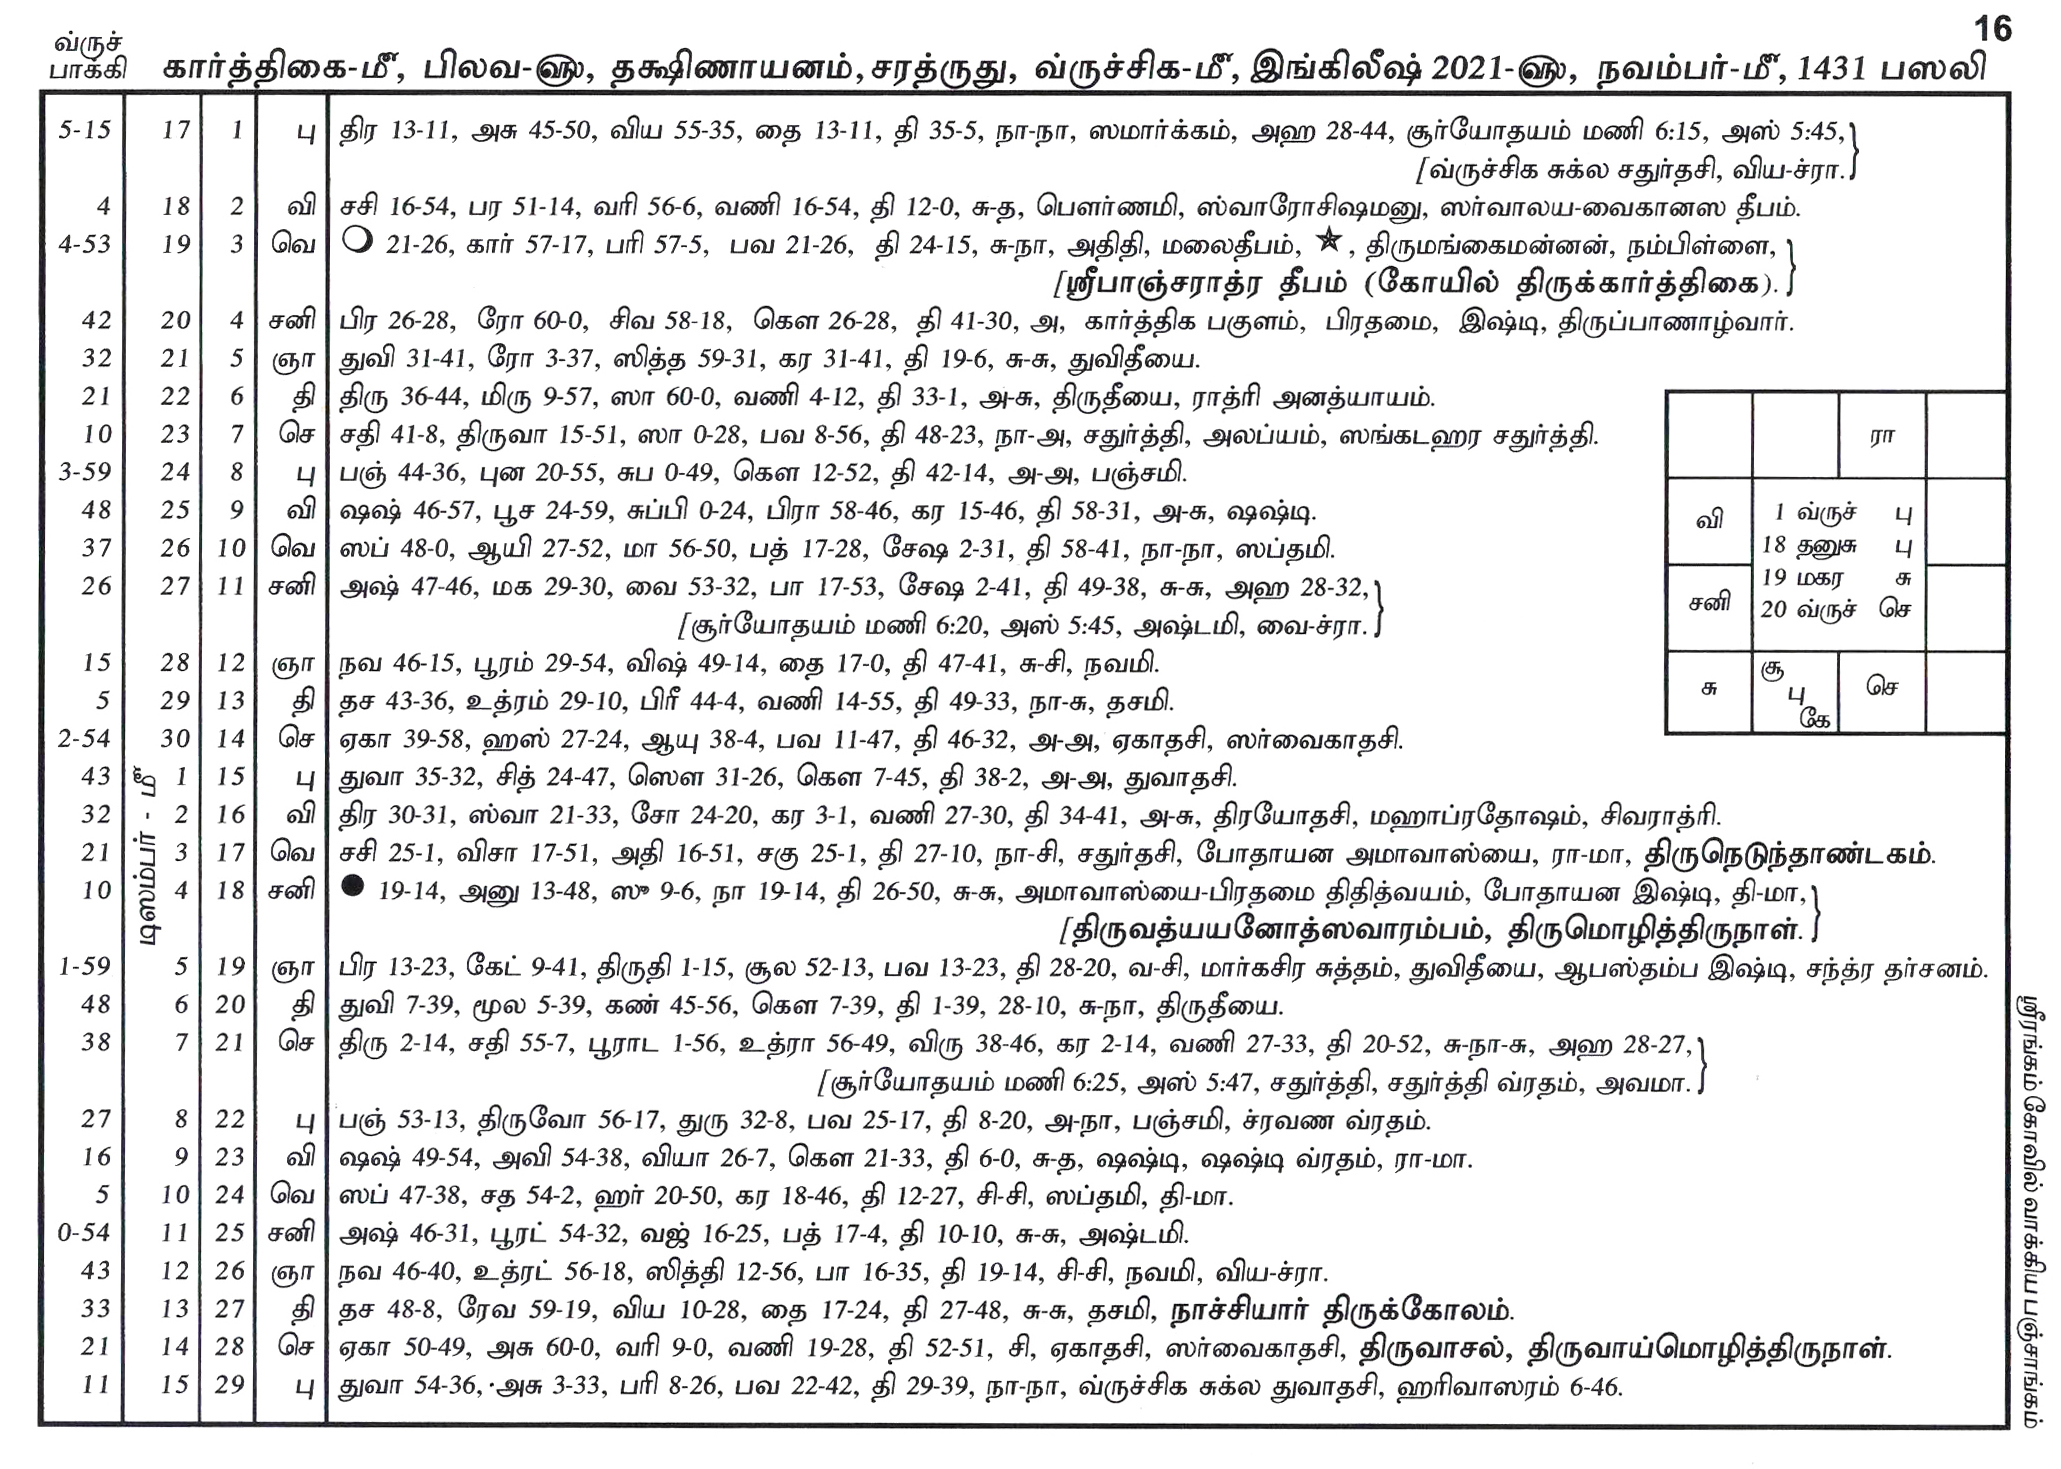 16
வ்ருச்
பாக்கி
கார்த்திகை-மீ, பிலவ-௵, தக்ஷிணாயனம், சரத்ருது, வ்ருச்சிக-மீ, இங்கிலீஷ் 2021-௵, நவம்பர்-மீ, 1431 பஸலி
5-15 17 1 பு திர 13-11, அசு 45-50, விய 55-35, தை 13-11, தி 35-5, நா-நா, ஸமார்க்கம், அஹ 28-44, சூர்யோதயம் மணி 6:15, அஸ் 5:45,}
[வ்ருச்சிக சுக்ல சதுர்தசி, விய-ச்ரா.
4 18 2 வி சசி 16-54, பர 51-14, வரி 56-6, வணி 16-54, தி 12-0, சு-த, பௌர்ணமி, ஸ்வாரோசிஷமனு, ஸர்வாலய-வைகானஸ தீபம்.
4-53 19 3 வெ ○ 21-26, கார் 57-17, பரி 57-5, பவ 21-26, தி 24-15, சு-நா, அதிதி, மலைதீபம், ★, திருமங்கைமன்னன், நம்பிள்ளை,}
[ஸ்ரீபாஞ்சராத்ர தீபம் (கோயில் திருக்கார்த்திகை).
42 20 4 சனி பிர 26-28, ரோ 60-0, சிவ 58-18, கௌ 26-28, தி 41-30, அ, கார்த்திக பகுளம், பிரதமை, இஷ்டி, திருப்பாணாழ்வார்.
32 21 5 ஞா துவி 31-41, ரோ 3-37, ஸித்த 59-31, கர 31-41, தி 19-6, சு-சு, துவிதீயை.
21 22 6 தி திரு 36-44, மிரு 9-57, ஸா 60-0, வணி 4-12, தி 33-1, அ-சு, திருதீயை, ராத்ரி அனத்யாயம்.
10 23 7 செ சதி 41-8, திருவா 15-51, ஸா 0-28, பவ 8-56, தி 48-23, நா-அ, சதுர்த்தி, அலப்யம், ஸங்கடஹர சதுர்த்தி.
3-59 24 8 பு பஞ் 44-36, புன 20-55, சுப 0-49, கௌ 12-52, தி 42-14, அ-அ, பஞ்சமி.
48 25 9 வி ஷஷ் 46-57, பூச 24-59, சுப்பி 0-24, பிரா 58-46, கர 15-46, தி 58-31, அ-சு, ஷஷ்டி.
37 26 10 வெ ஸப் 48-0, ஆயி 27-52, மா 56-50, பத் 17-28, சேஷ 2-31, தி 58-41, நா-நா, ஸப்தமி.
26 27 11 சனி அஷ் 47-46, மக 29-30, வை 53-32, பா 17-53, சேஷ 2-41, தி 49-38, சு-சு, அஹ 28-32,}
[சூர்யோதயம் மணி 6:20, அஸ் 5:45, அஷ்டமி, வை-ச்ரா.
15 28 12 ஞா நவ 46-15, பூரம் 29-54, விஷ் 49-14, தை 17-0, தி 47-41, சு-சி, நவமி.
5 29 13 தி தச 43-36, உத்ரம் 29-10, பிரீ 44-4, வணி 14-55, தி 49-33, நா-சு, தசமி.
2-54 30 14 செ ஏகா 39-58, ஹஸ் 27-24, ஆயு 38-4, பவ 11-47, தி 46-32, அ-அ, ஏகாதசி, ஸர்வைகாதசி.
டிஸம்பர் - மீ
43 1 15 பு துவா 35-32, சித் 24-47, ஸௌ 31-26, கௌ 7-45, தி 38-2, அ-அ, துவாதசி.
32 2 16 வி திர 30-31, ஸ்வா 21-33, சோ 24-20, கர 3-1, வணி 27-30, தி 34-41, அ-சு, திரயோதசி, மஹாப்ரதோஷம், சிவராத்ரி.
21 3 17 வெ சசி 25-1, விசா 17-51, அதி 16-51, சகு 25-1, தி 27-10, நா-சி, சதுர்தசி, போதாயன அமாவாஸ்யை, ரா-மா, திருநெடுந்தாண்டகம்.
10 4 18 சனி ● 19-14, அனு 13-48, ஸு 9-6, நா 19-14, தி 26-50, சு-சு, அமாவாஸ்யை-பிரதமை திதித்வயம், போதாயன இஷ்டி, தி-மா,}
[திருவத்யயனோத்ஸவாரம்பம், திருமொழித்திருநாள்.
1-59 5 19 ஞா பிர 13-23, கேட் 9-41, திருதி 1-15, சூல 52-13, பவ 13-23, தி 28-20, வ-சி, மார்கசிர சுத்தம், துவிதீயை, ஆபஸ்தம்ப இஷ்டி, சந்த்ர தர்சனம்.
48 6 20 தி துவி 7-39, மூல 5-39, கண் 45-56, கௌ 7-39, தி 1-39, 28-10, சு-நா, திருதீயை.
38 7 21 செ திரு 2-14, சதி 55-7, பூராட 1-56, உத்ரா 56-49, விரு 38-46, கர 2-14, வணி 27-33, தி 20-52, சு-நா-சு, அஹ 28-27,}
[சூர்யோதயம் மணி 6:25, அஸ் 5:47, சதுர்த்தி, சதுர்த்தி வ்ரதம், அவமா.
27 8 22 பு பஞ் 53-13, திருவோ 56-17, துரு 32-8, பவ 25-17, தி 8-20, அ-நா, பஞ்சமி, ச்ரவண வ்ரதம்.
16 9 23 வி ஷஷ் 49-54, அவி 54-38, வியா 26-7, கௌ 21-33, தி 6-0, சு-த, ஷஷ்டி, ஷஷ்டி வ்ரதம், ரா-மா.
5 10 24 வெ ஸப் 47-38, சத 54-2, ஹர் 20-50, கர 18-46, தி 12-27, சி-சி, ஸப்தமி, தி-மா.
0-54 11 25 சனி அஷ் 46-31, பூரட் 54-32, வஜ் 16-25, பத் 17-4, தி 10-10, சு-சு, அஷ்டமி.
43 12 26 ஞா நவ 46-40, உத்ரட் 56-18, ஸித்தி 12-56, பா 16-35, தி 19-14, சி-சி, நவமி, விய-ச்ரா.
33 13 27 தி தச 48-8, ரேவ 59-19, விய 10-28, தை 17-24, தி 27-48, சு-சு, தசமி, நாச்சியார் திருக்கோலம்.
21 14 28 செ ஏகா 50-49, அசு 60-0, வரி 9-0, வணி 19-28, தி 52-51, சி, ஏகாதசி, ஸர்வைகாதசி, திருவாசல், திருவாய்மொழித்திருநாள்.
11 15 29 பு துவா 54-36, அசு 3-33, பரி 8-26, பவ 22-42, தி 29-39, நா-நா, வ்ருச்சிக சுக்ல துவாதசி, ஹரிவாஸரம் 6-46.
ரா
வி
1 வ்ருச் பு
18 தனுசு பு
19 மகர சு
20 வ்ருச் செ
சனி
சு
சூ
பு
கே
செ
ஸ்ரீரங்கம் கோவில் வாக்கிய பஞ்சாங்கம்